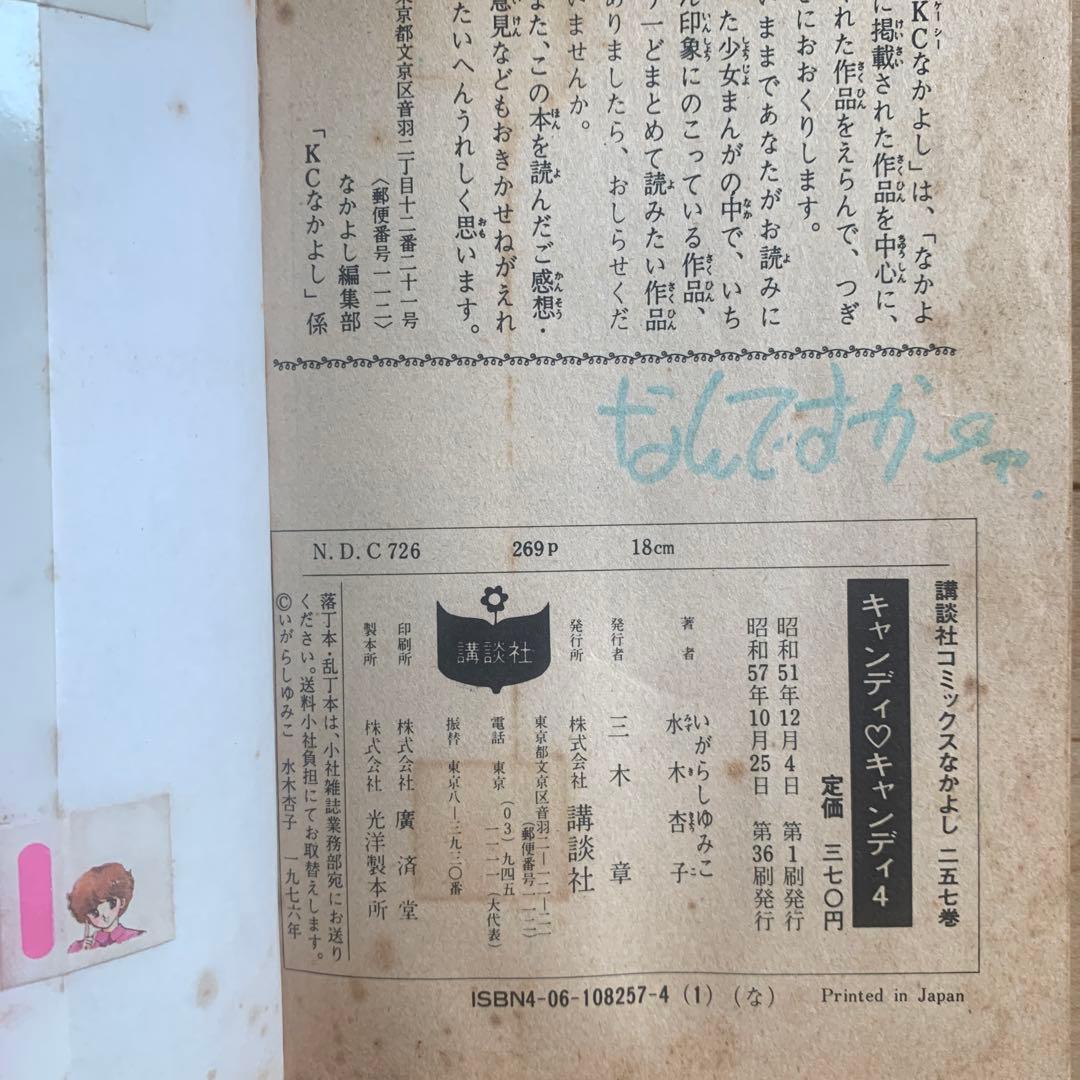 KCなかよし」は、「なかよ
に掲載された作品を中心に、
れた作品をえらんで、つぎ
におおくりします。
いままであなたがお読みに
た少女まんがの中で、いち
ん印象にのこっている作品、
う一どまとめて読みたい作品
ありましたら、おしらせくだ
いませんか。
また、この本を読んだご感想・
意見などもおきかせねがえれ
たいへんうれしく思います。
東京都文京区音羽二丁目十二番二十一号
〈郵便番号一一二〉
なかよし編集部
「KCなかよし」係
なんですか
N.D.C 726 269p 18cm
講談社コミックスなかよし 二五七巻
キャンディ♡キャンディ4
定価 三七〇円
昭和51年12月4日 第1刷発行
昭和57年10月25日 第36刷発行
著者 いがらしゆみこ
水木杏子
発行者 三木章
発行所 株式会社 講談社
東京都文京区音羽二―一二―二一
(郵便番号一一二)
電話 東京 (03) 九四五
一一一一 (大代表)
振替 東京八―三九三〇番
講談社
印刷所 株式会社 廣済堂
製本所 株式会社 光洋製本所
落丁本・乱丁本は、小社雑誌業務部宛にお送り
ください。送料小社負担にてお取替えします。
©いがらしゆみこ 水木杏子 一九七六年
ISBN4-06-108257-4 (1) (な) Printed in Japan